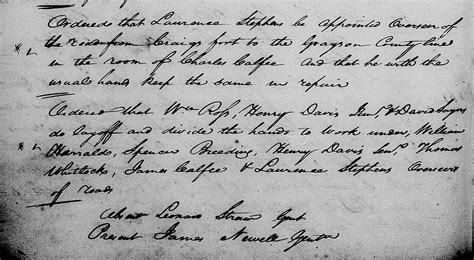 Ordered that Laurence Stephens be appointed Overseer of
the road from Craigs fort to the Grayson County line
in the room of Charles Calfee and that he with the
usual hands keep the same in repair
Ordered that Wm Ross, Henry Davis Senr, & David
do layoff and divide the hands to work under, William
Harralds, Spencer Breeding, Henry Davis Senr Thomas
Whitlocks, James Calfee & Laurence Stephens Overseers
of roads
Absent Leonard Straw Gent
Present James Newell Gent